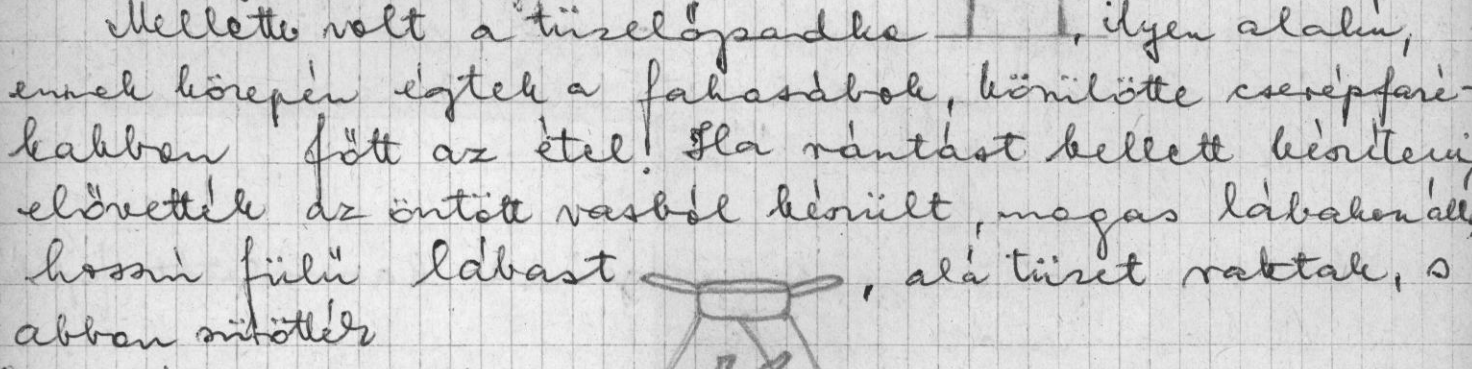 Mellette volt a tüzelőpadka , ilyen alakú,
ennek közepén égtek a fahasábok, körülötte cserépfazé-
kakban főtt az étel. Ha rántást kellett készíteni,
elővették az öntött vasból készült, magas lábakon álló,
hosszú fülű lábast , alá tüzet raktak, s
abban sütötték